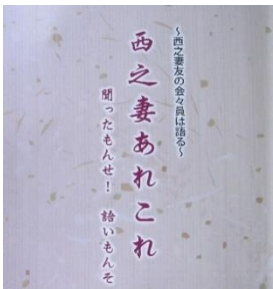 ～西之妻友の会々員は語る～
西之妻あれこれ
聞ったもんせ！　語いもんそ